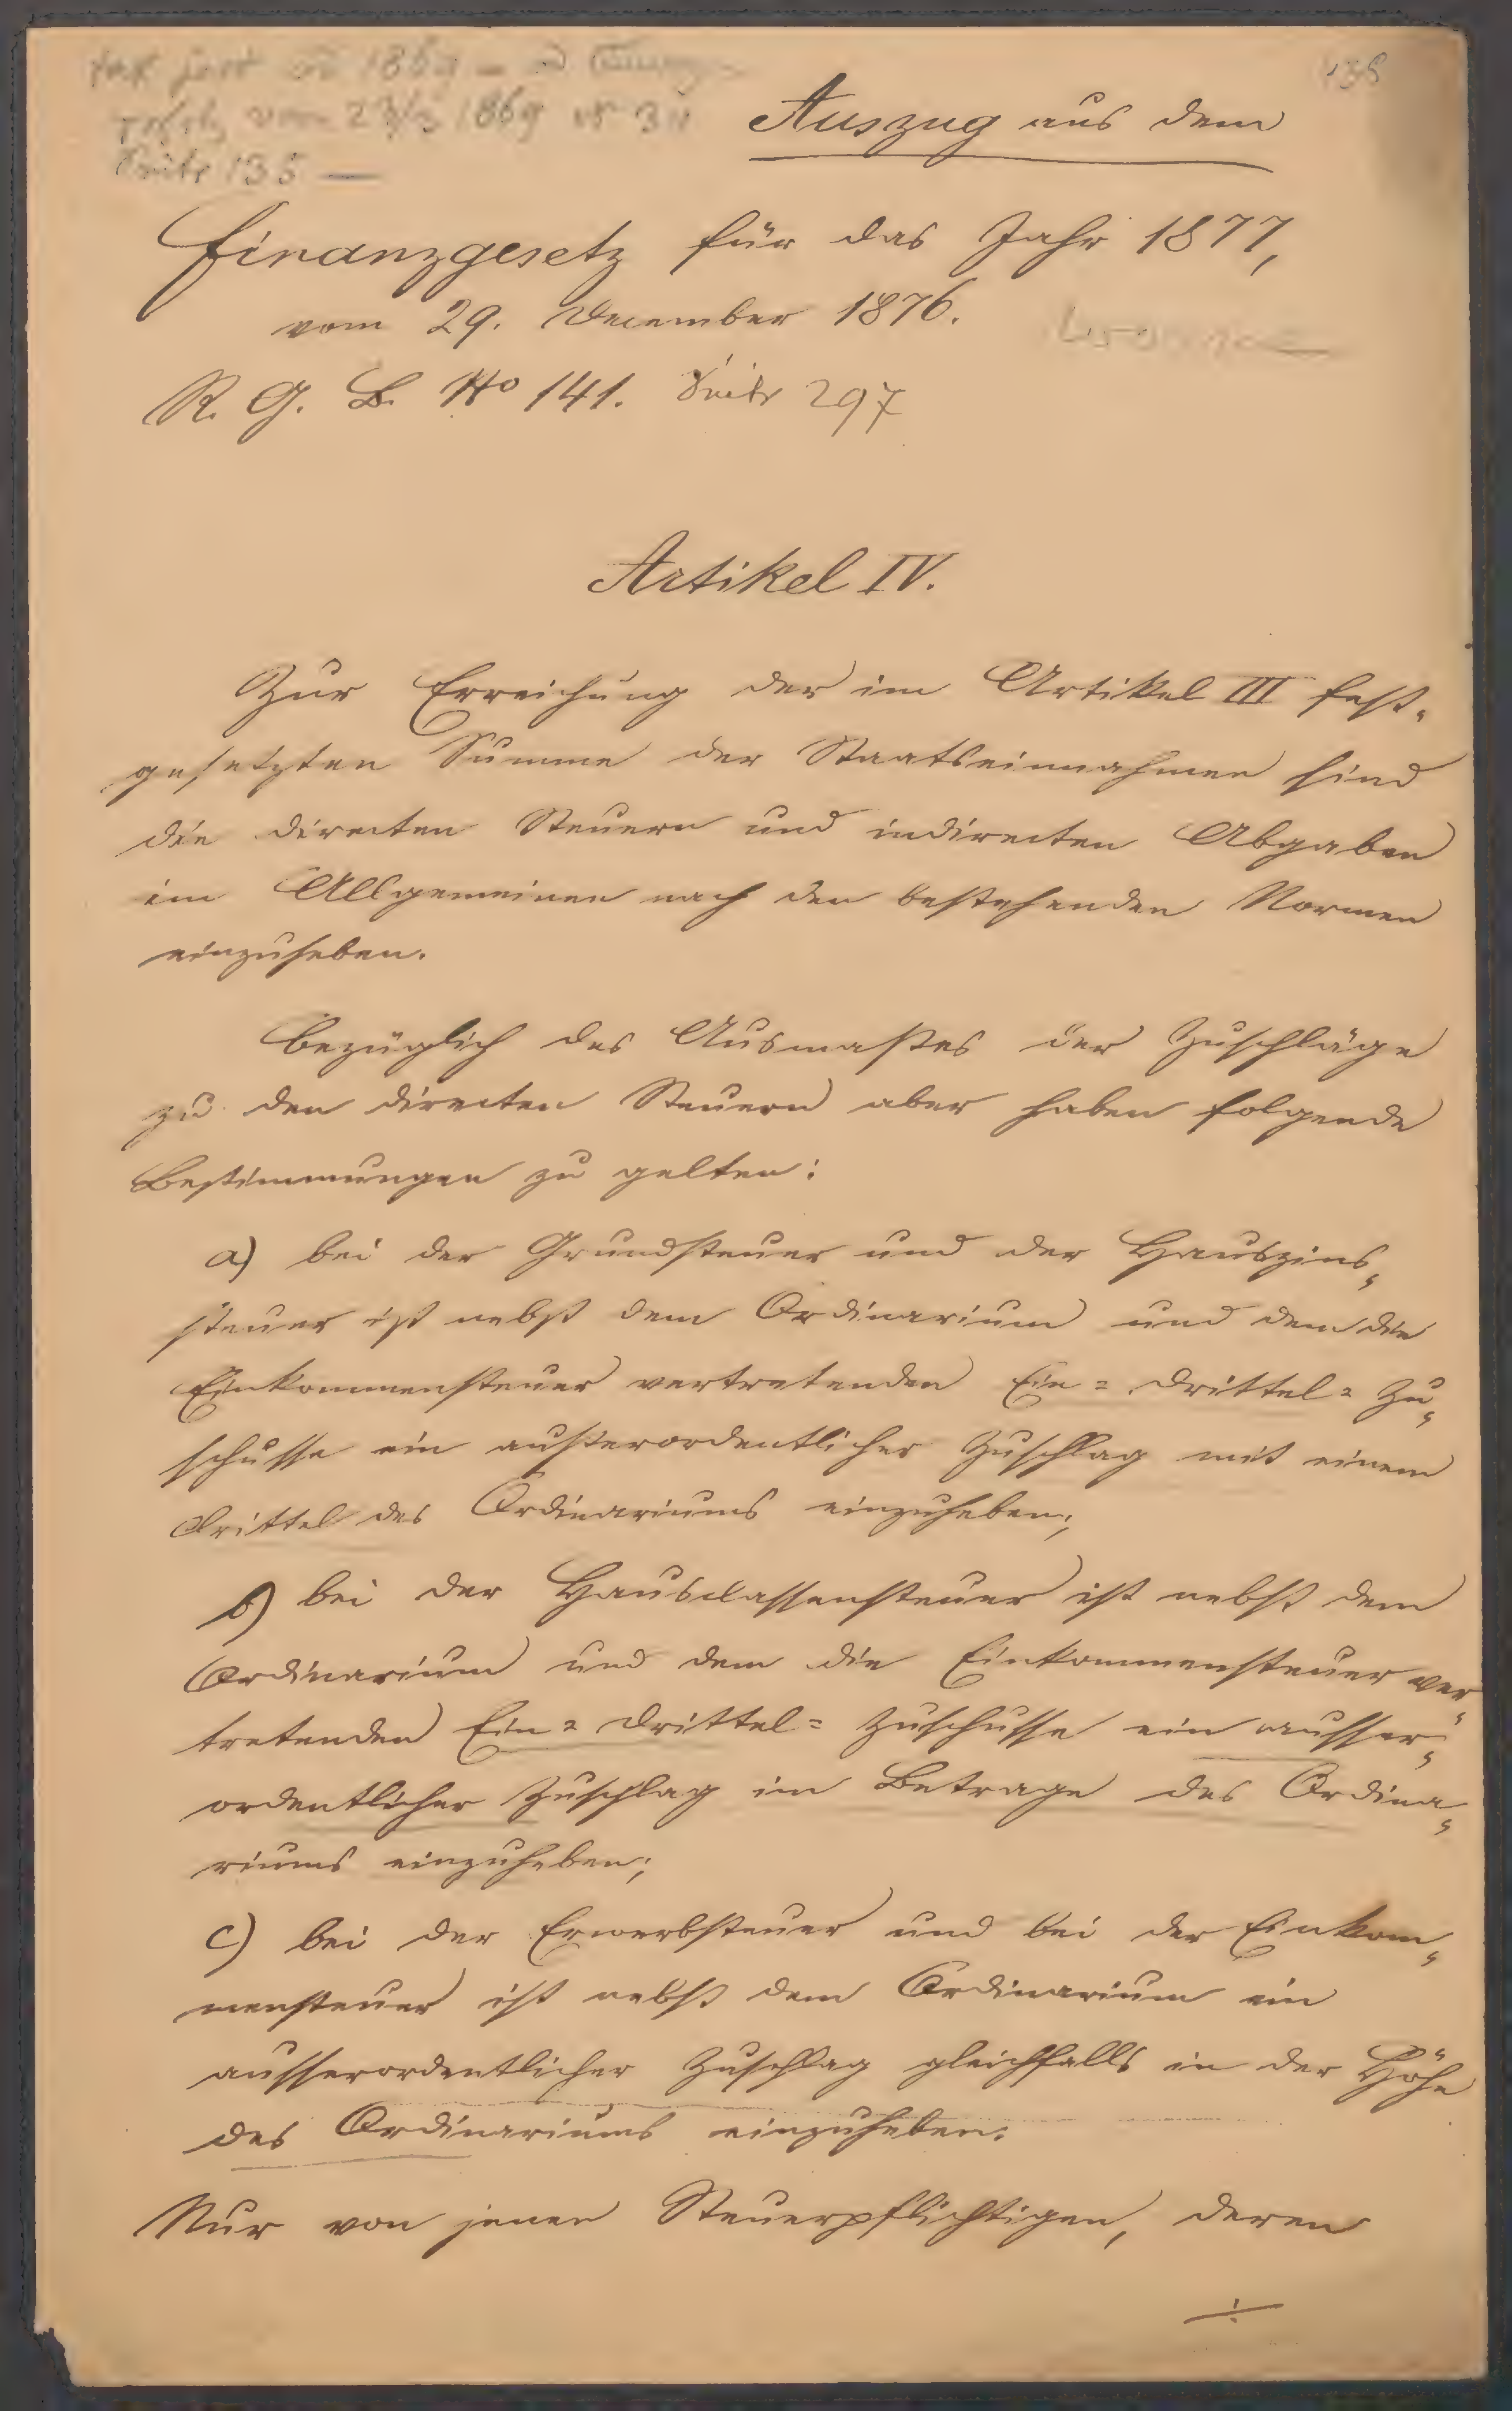 1869
vom 23/3 1869 No 31
Seite 135 —
135
Auszug aus dem
Finanzgesetz für das Jahr 1877,
vom 29. December 1876.
R. G. B. No 141. Seite 297
Artikel IV.
Zur Erreichung der im Artikel III fest-
gesetzten Summe der Staatseinnahmen sind
die directen Steuern und indirecten Abgaben
im Allgemeinen nach den bestehenden Normen
einzuheben.
Bezüglich des Ausmaßes der Zuschläge
zu den directen Steuern aber haben folgende
Bestimmungen zu gelten:
a) bei der Grundsteuer und der Hauszins-
steuer ist nebst dem Ordinarium und dem die
Einkommensteuer vertretenden Ein=Drittel=Zu-
schusse ein außerordentlicher Zuschlag mit einem
Drittel des Ordinariums einzuheben;
b) bei der Hausclassensteuer ist nebst dem
Ordinarium und dem die Einkommensteuer ver-
tretenden Ein=Drittel=Zuschusse ein ausser-
ordentlicher Zuschlag im Betrage des Ordina-
riums einzuheben;
c) bei der Erwerbsteuer und bei der Einkom-
mensteuer ist nebst dem Ordinarium ein
ausserordentlicher Zuschlag gleichfalls in der Höhe
des Ordinariums einzuheben.
Nur von jenen Steuerpflichtigen, deren
./.